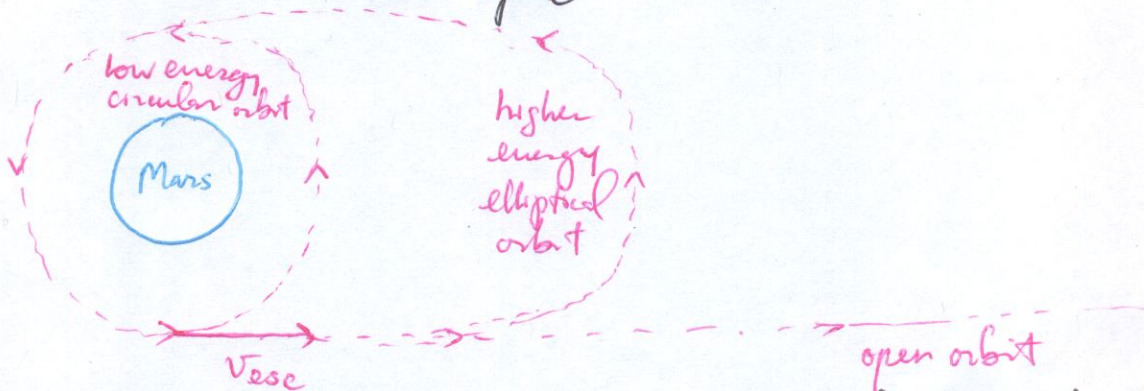 low energy
circular orbit
Mars
higher
energy
elliptical
orbit
Vesc
open orbit